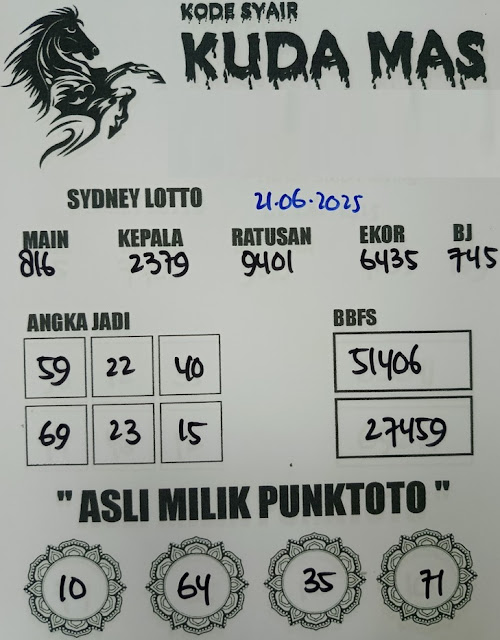 KODE SYAIR
KUDA MAS
SYDNEY LOTTO 21.06.2025
MAIN KEPALA RATUSAN EKOR BJ
816 2379 9401 6435 745
ANGKA JADI BBFS
59 22 40 51406
69 23 15 27459
" ASLI MILIK PUNKTOTO "
10 64 35 71